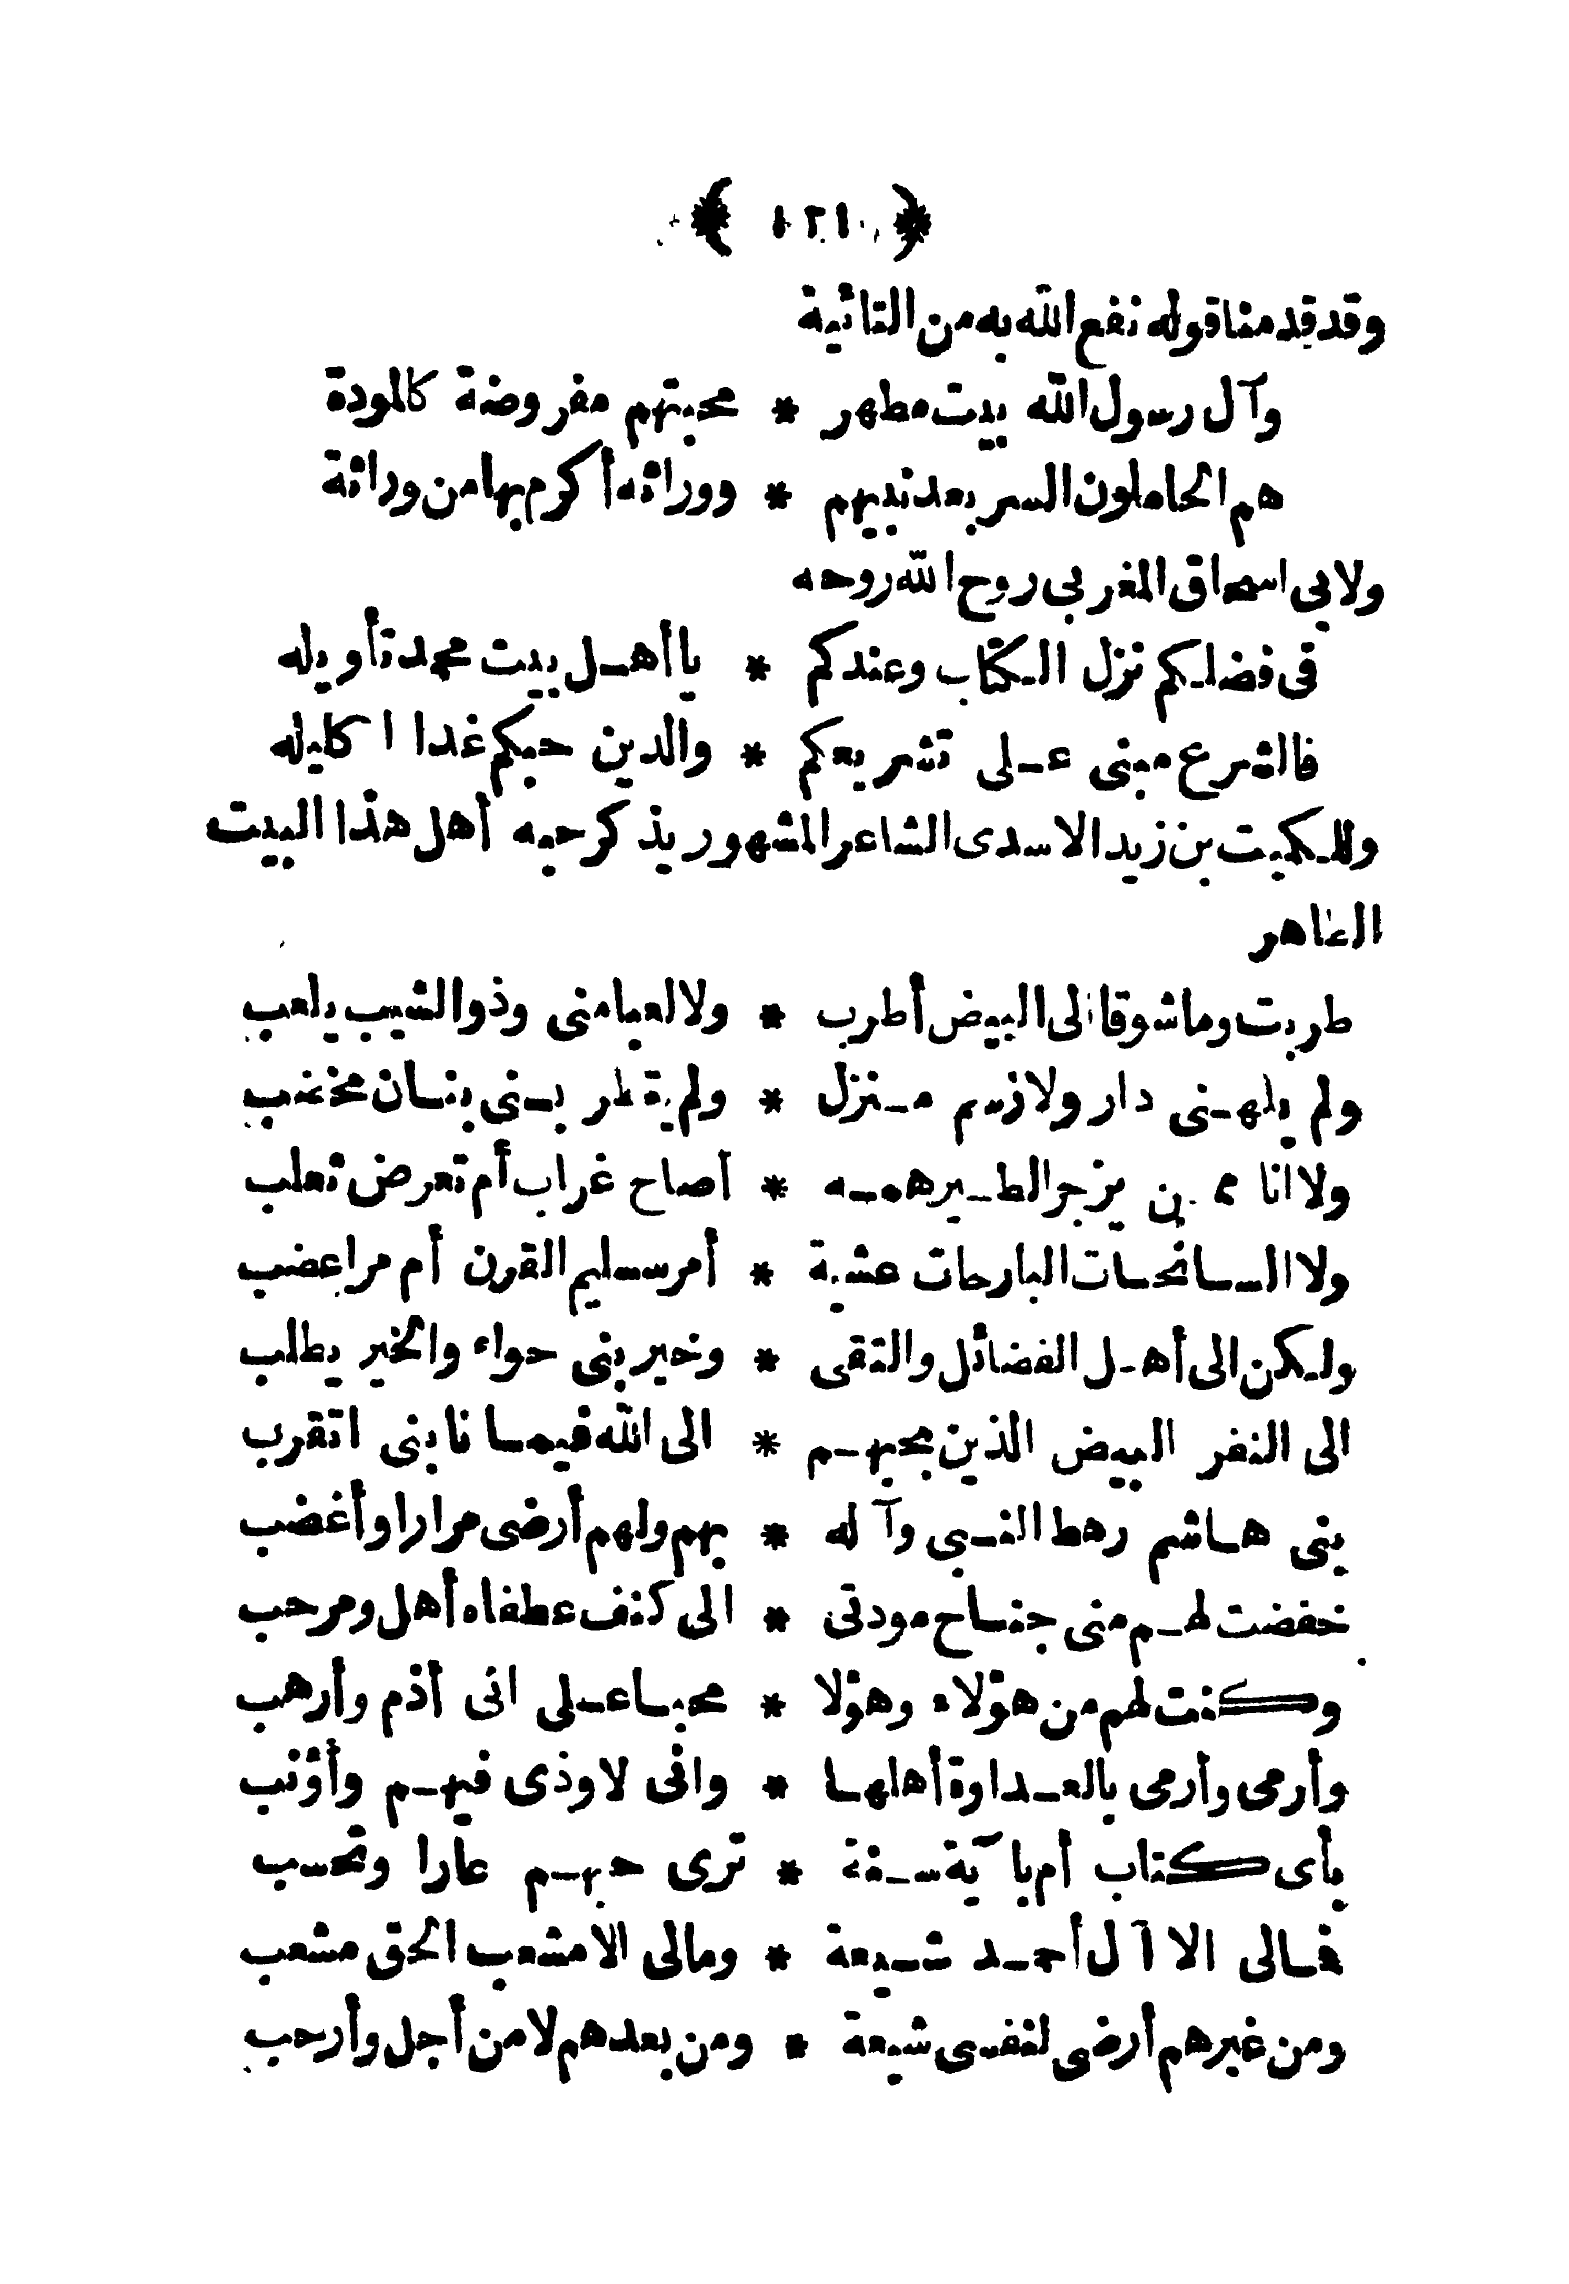 ﴿ ١٢١ ﴾
وقد قدمنا قوله نفع الله به من التائية
وآل رسول الله بيت مطهر * محبتهم مفروضة كالمودة
هم الحاملون السر بعد نبيهم * ووراثه أكرم بها من وراثة
ولابى اسحاق المغربى روح الله روحه
فى فضلكم نزل الكتاب وعندكم * يا أهل بيت محمد تأويله
فالشرع مبنى على تشريعكم * والدين حبكم غدا اكليله
وللكميت بن زيد الاسدى الشاعر المشهور يذكر حبه أهل هذا البيت
الطاهر
طربت وما شوقا الى البيض أطرب * ولا لعبا منى وذو الشيب يلعب
ولم يلهنى دار ولا رسم منزل * ولم يتطربنى بنان مخضب
ولا انا ممن يزجر الطير همه * أصاح غراب أم تعرض ثعلب
ولا السانحات البارحات عشية * أمر سليم القرن أم مر اعضب
ولكن الى أهل الفضائل والتقى * وخير بنى حواء والخير يطلب
الى النفر البيض الذين بحبهم * الى الله فيما نابنى اتقرب
بنى هاشم رهط النبى وآله * بهم ولهم أرضى مرارا وأغضب
خفضت لهم منى جناح مودتى * الى كنف عطفاه أهل ومرحب
وكنت لهم من هؤلاء وهؤلا * محبا على انى أذم وأرهب
وأرمى وأرمى بالعداوة أهلها * وانى لاوذى فيهم وأؤنب
بأى كتاب أم بآية سنة * ترى حبهم عارا وتحسب
فمالى الا آل أحمد شيعة * ومالى الا مشعب الحق مشعب
ومن غيرهم أرضى لنفسى شيعة * ومن بعدهم لا من أجل وأرحب